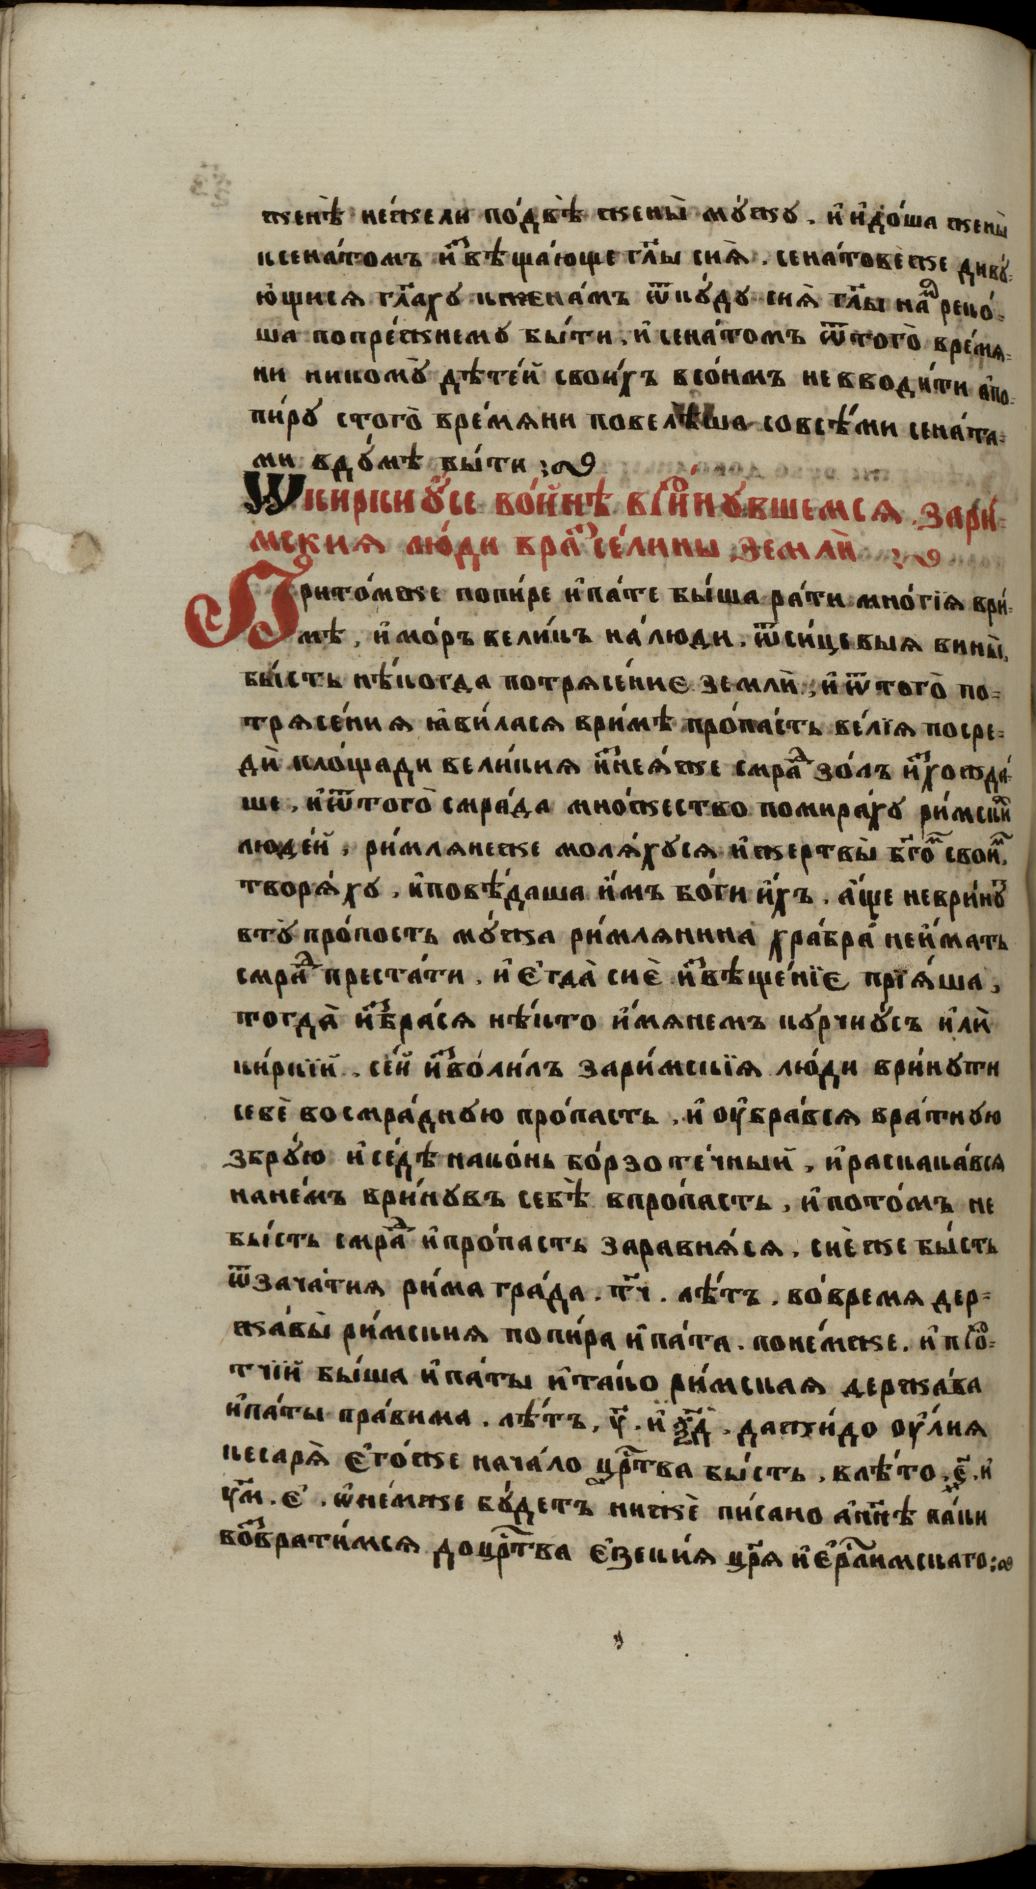 женѣ не́жели по́двѣ жены̀ му́жу . и҆ и҆до́ша жены̀
ксена́томъ и҆звѣща́юще гл҃ы сиѧ̀ . сена́товѐже диву́-
ю҆щисѧ гл҃аху кженáмъ ѿку́ду сиѧ̀ гл҃ы на́м реко́-
ша попре́жнему бы́ти , и҆ сена́томъ ѿтого̀ врéмѧ-
ни никомꙋ̀ дѣте́й свои́хъ всо́нмъ невводи́ти а҆по-
пи́ру стого̀ врéмѧни повелѣша совсѣ́ми сена́та-
ми вду́мѣ бы́ти
Ѡкиркиꙋ́се во́йнѣ вве́ргнувшемсѧ . зари́-
мскиѧ лю́ди вра́зсе́лины земли̑
Прито́мже попи́ре и҆па́те бы́ша ра́ти мно́гїѧ ври́-
мѣ , и҆мо́ръ вели́къ на́люди . ѿси́цевыѧ вины̀,
бы́сть нѣ́когда потрѧсе́ние земли̑ , и҆ ѿтого̀ по-
трѧсе́ниѧ ꙗ҆ви́ласѧ ври́мѣ про́пасть ве́лїѧ посре-
ди̑ пло́щади вели́киѧ и҆знеѧ́же смра́д зо́лъ и҆схожда́-
ше , и҆ѿтого̀ смра́да мно́жество помира́ху ри́мски
люде́й , ри́млѧнеже молѧ́хусѧ и҆жертвы̀ бг҃ом свои́м
творѧ́ху , и҆повѣ́даша и҆́мъ бо́ги и҆́хъ . а҆́ще неври́нꙋ
вту̀ про́пость му́жа ри́млѧнина хра́бра неи́мать
смра́д преста́ти . и҆ є҆гда̀ сиѐ и҆звѣще́нїе прїѧ́ша ,
тогда̀ и҆збра́сѧ нѣ́кто и҆́мѧнемъ курчиу́съ и҆ли̑
ки́ркїй . се́й и҆зво́лилъ зари́мскїѧ лю́ди ври́нути
себѐ восмра́дную про́пасть , и҆ оу҆бра́всѧ вра́тную
збру́ю и҆ се́дѣ нако́нь бо́рзоте́чный , и҆раскака́всѧ
нане́мъ ври́нувъ себѣ̀ впро́пасть , и҆пото́мъ не
бы́сть смра́д и҆про́пасть заравнѧ́сѧ , сиѐже бы́сть
ѿзача́тиѧ ри́ма гра́да . т҃ч . лѣ́тъ . во́времѧ дер-
жа́вы̀ ри́мскиѧ попи́ра и҆па́та . поне́мже . и҆про́-
тчїй бы́ша и҆па́ты и҆та́ко ри́мскаѧ держа́ва
и҆па́ты пра́вима . лѣ́тъ , у҃ . и҆ ѯ҃д . дажи́до оу҆́лиѧ
кесарѧ̀ є҆го́же нача́ло црⷭ҇тва бы́сть . влѣ́то . ҂е҃ . и҆
у҃м . є҆ . ѡ҆не́мже бу́детъ нижѐ пи́сано а҆нн҃ѣ па́ки
возврати́мсѧ доцрⷭ҇тва є҆зеки́ѧ цр҃ѧ и҆є҆рⷭ҇лимскаго :